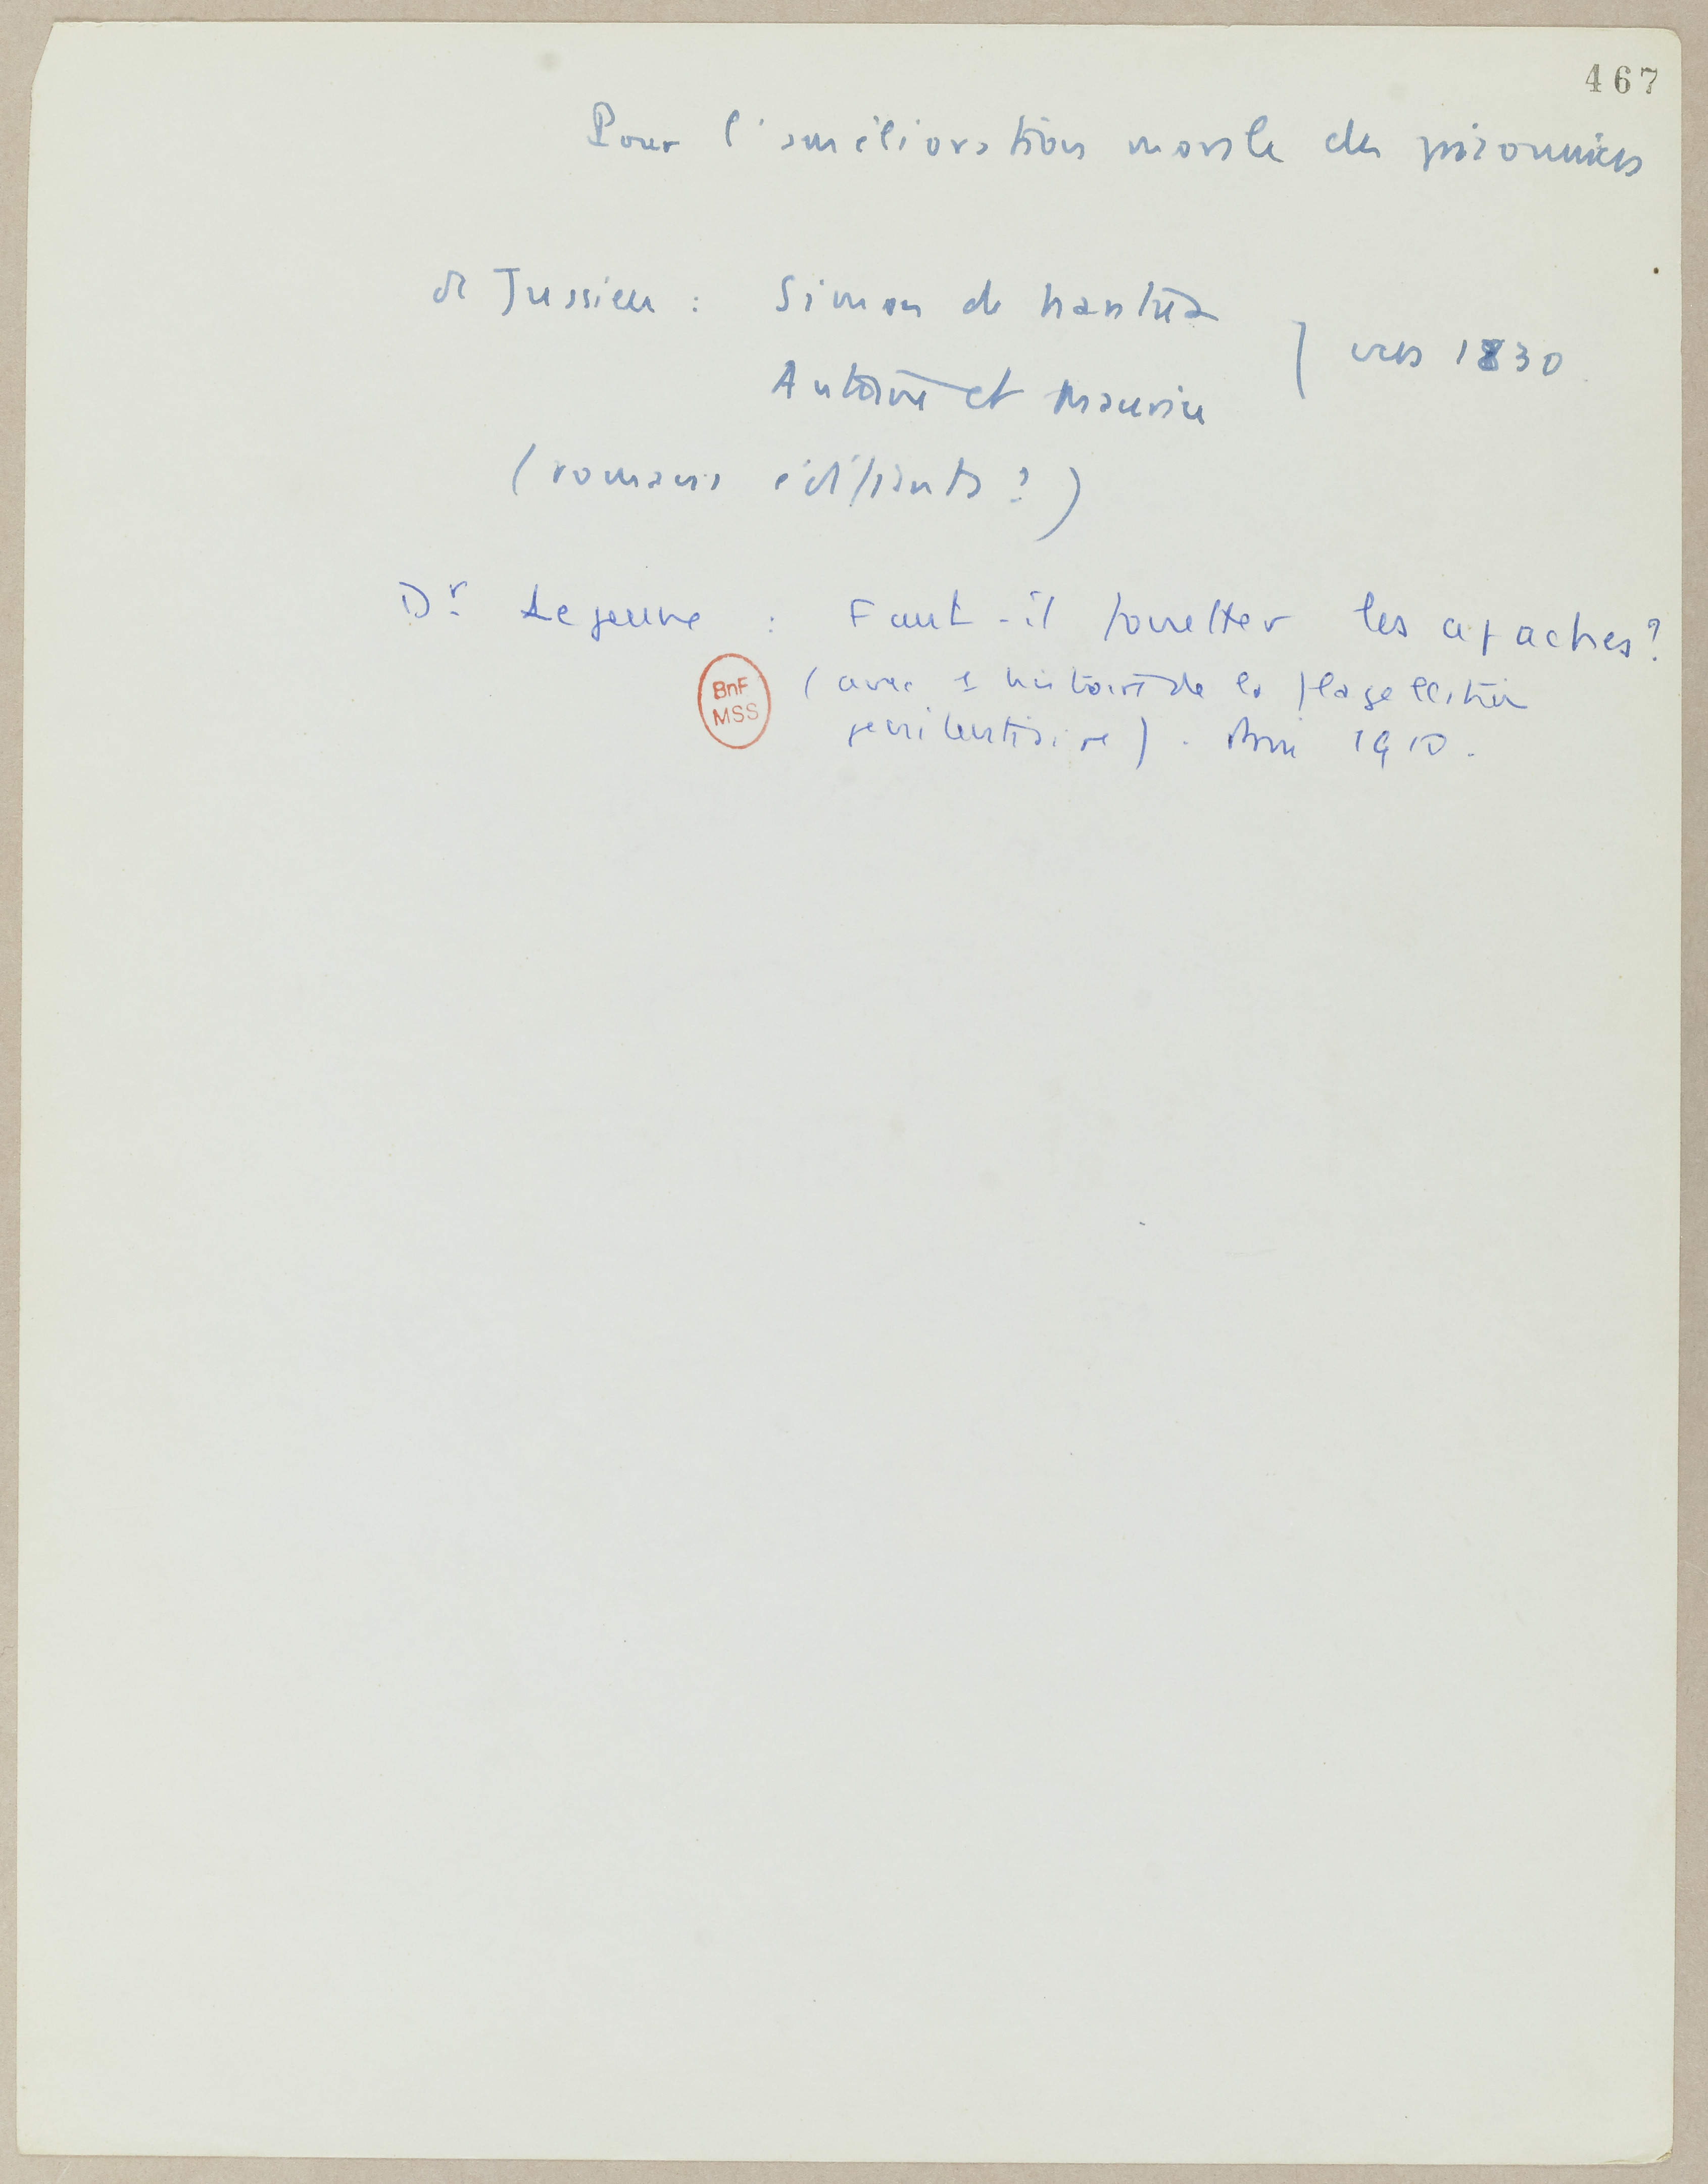 467
Pour l'amélioration morale des prisonniers
de Jussieu : Simon de Nantua
Antoine et Maurice } vers 1830
(romans édifiants ?)
Dr Lejeune : Faut-il fouetter les apaches ?
(avec 1 histoire de la flagellation
pénitentiaire). 1910.
BnF
MSS